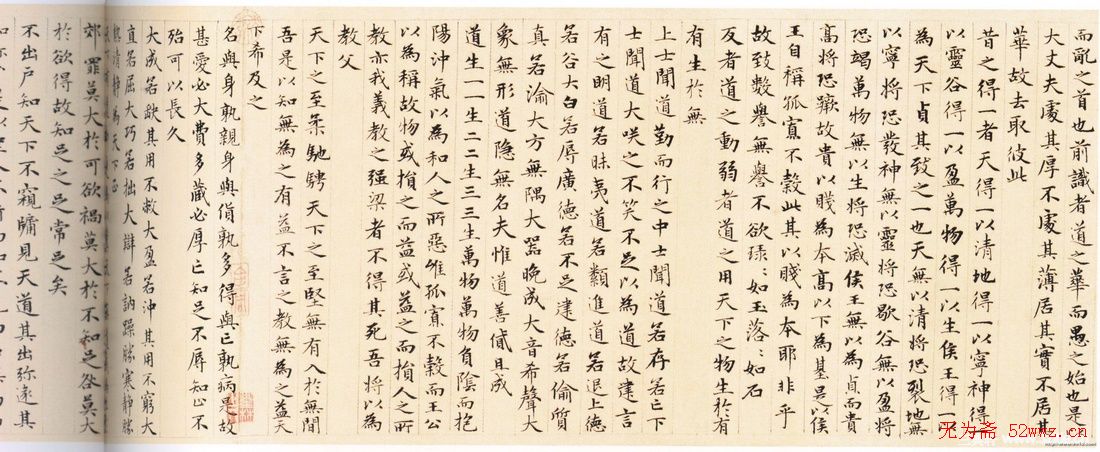 而亂之首也前識者道之華而愚之始也是
大丈夫處其厚不處其薄居其實不居其
華故去取彼此
昔之得一者天得一以清地得一以寧神得一
以靈谷得一以盈萬物得一以生侯王得一以
為天下貞其致之一也天無以清將恐裂地無
以寧將恐發神無以靈將恐歇谷無以盈將
恐竭萬物無以生將恐滅侯王無以為貞而貴
高將恐蹶故貴以賤為本高以下為基是以侯
王自稱孤寡不穀此其以賤為本耶非乎
故致數譽無譽不欲琭〻如玉落〻如石
反者道之動弱者道之用天下之物生於有
有生於無
上士聞道勤而行之中士聞道若存若亡下
士聞道大咲之不笑不足以為道故建言
有之明道若昧夷道若纇進道若退上德
若谷大白若辱廣德若不足建德若偷質
真若渝大方無隅大器晚成大音希聲大
象無形道隱無名夫惟道善貸且成
道生一一生二二生三三生萬物萬物負陰而抱
陽沖氣以為和人之所惡惟孤寡不穀而王公
以為稱故物或損之而益或益之而損人之所
教亦我義教之强梁者不得其死吾將以為
教父
天下之至柔馳騁天下之至堅無有入於無間
吾是以知無為之有益不言之教無為之益天
下希及之
名與身孰親身與貨孰多得與亡孰病是故
甚愛必大費多藏必厚亡知足不辱知止不
殆可以長久
大成若缺其用不敝大盈若沖其用不窮大
直若屈大巧若拙大辯若訥躁勝寒靜勝
熱清靜為天下正
郊罪莫大於可欲禍莫大於不知足咎莫大
於欲得故知足之足常足矣
不出戶知天下不窺牖見天道其出弥遠其
无为斋 52wwz.cn